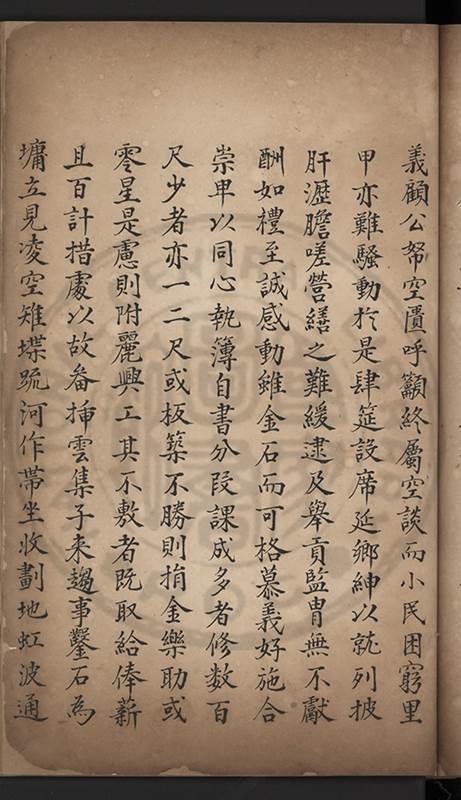 義顧公帑空匱呼籲終屬空談而小民困窮里
甲亦難騷動於是肆筵設席延鄉紳以就列披
肝瀝膽嗟營繕之難緩逮及舉貢監胄無不獻
酬如禮至誠感動雖金石而可格慕義好施合
崇卑以同心執簿自書分段課成多者修数百
尺少者亦一二尺或板築不勝則捐金樂助或
零星是慮則附麗興工其不敷者既取給俸薪
且百計措處以故畚揷雲集子来趨事鑿石為
墉立見凌空雉堞䟽河作帶坐收劃地虹波通